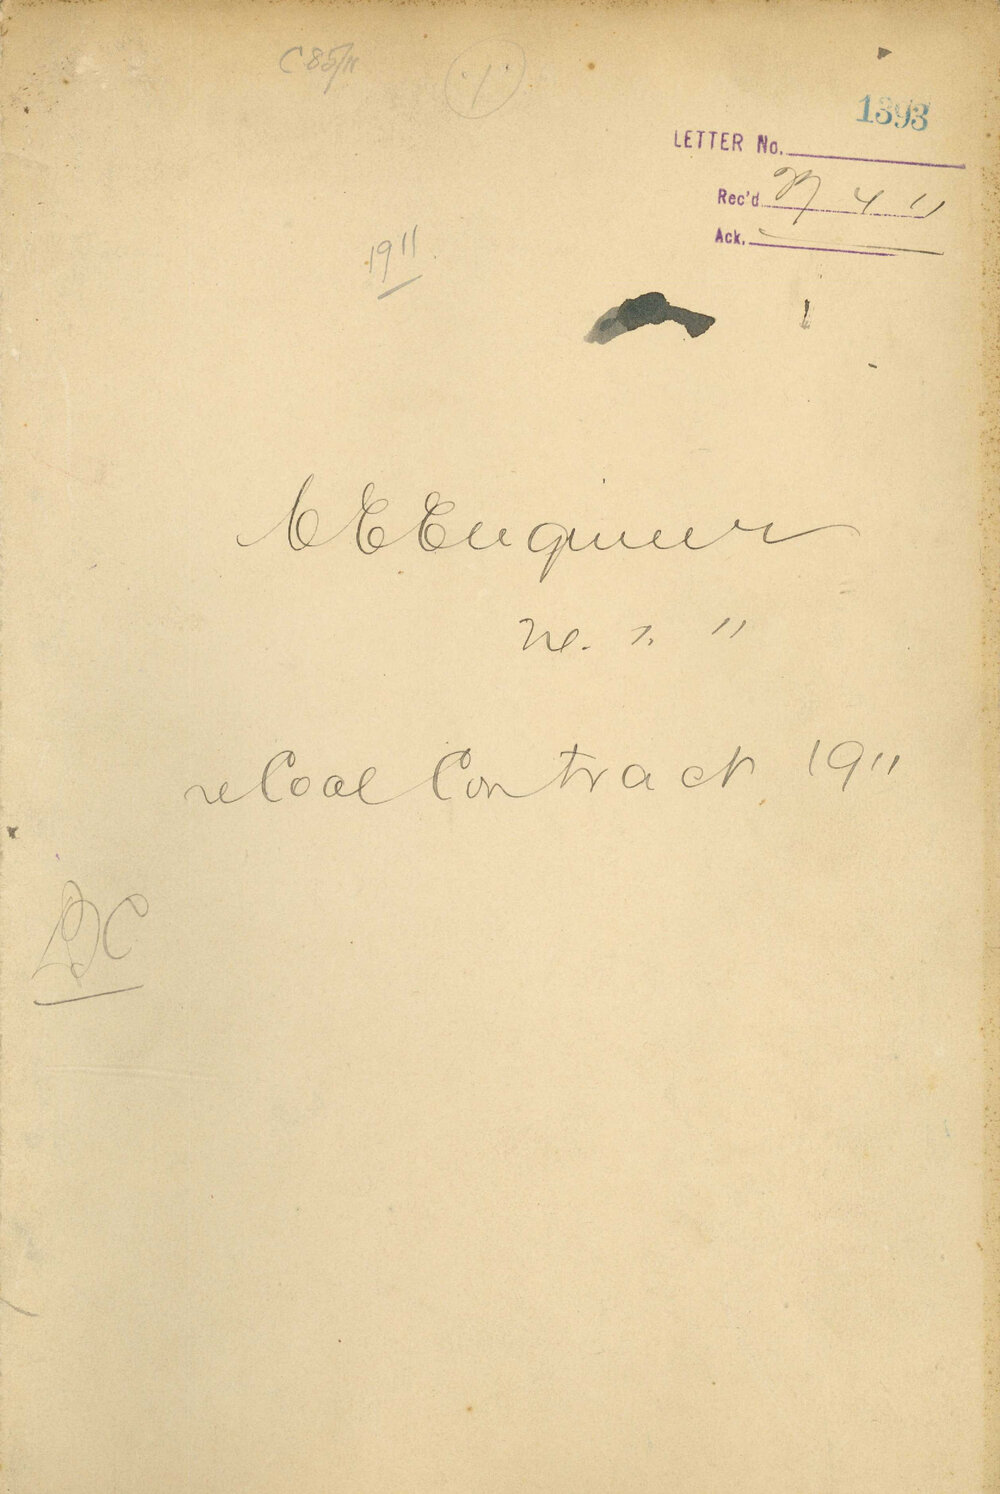 C 85/11
1
1393
LETTER No.
Rec'd 4 11
Ack.
1911
C E Engineer
re Coal Contract 1911